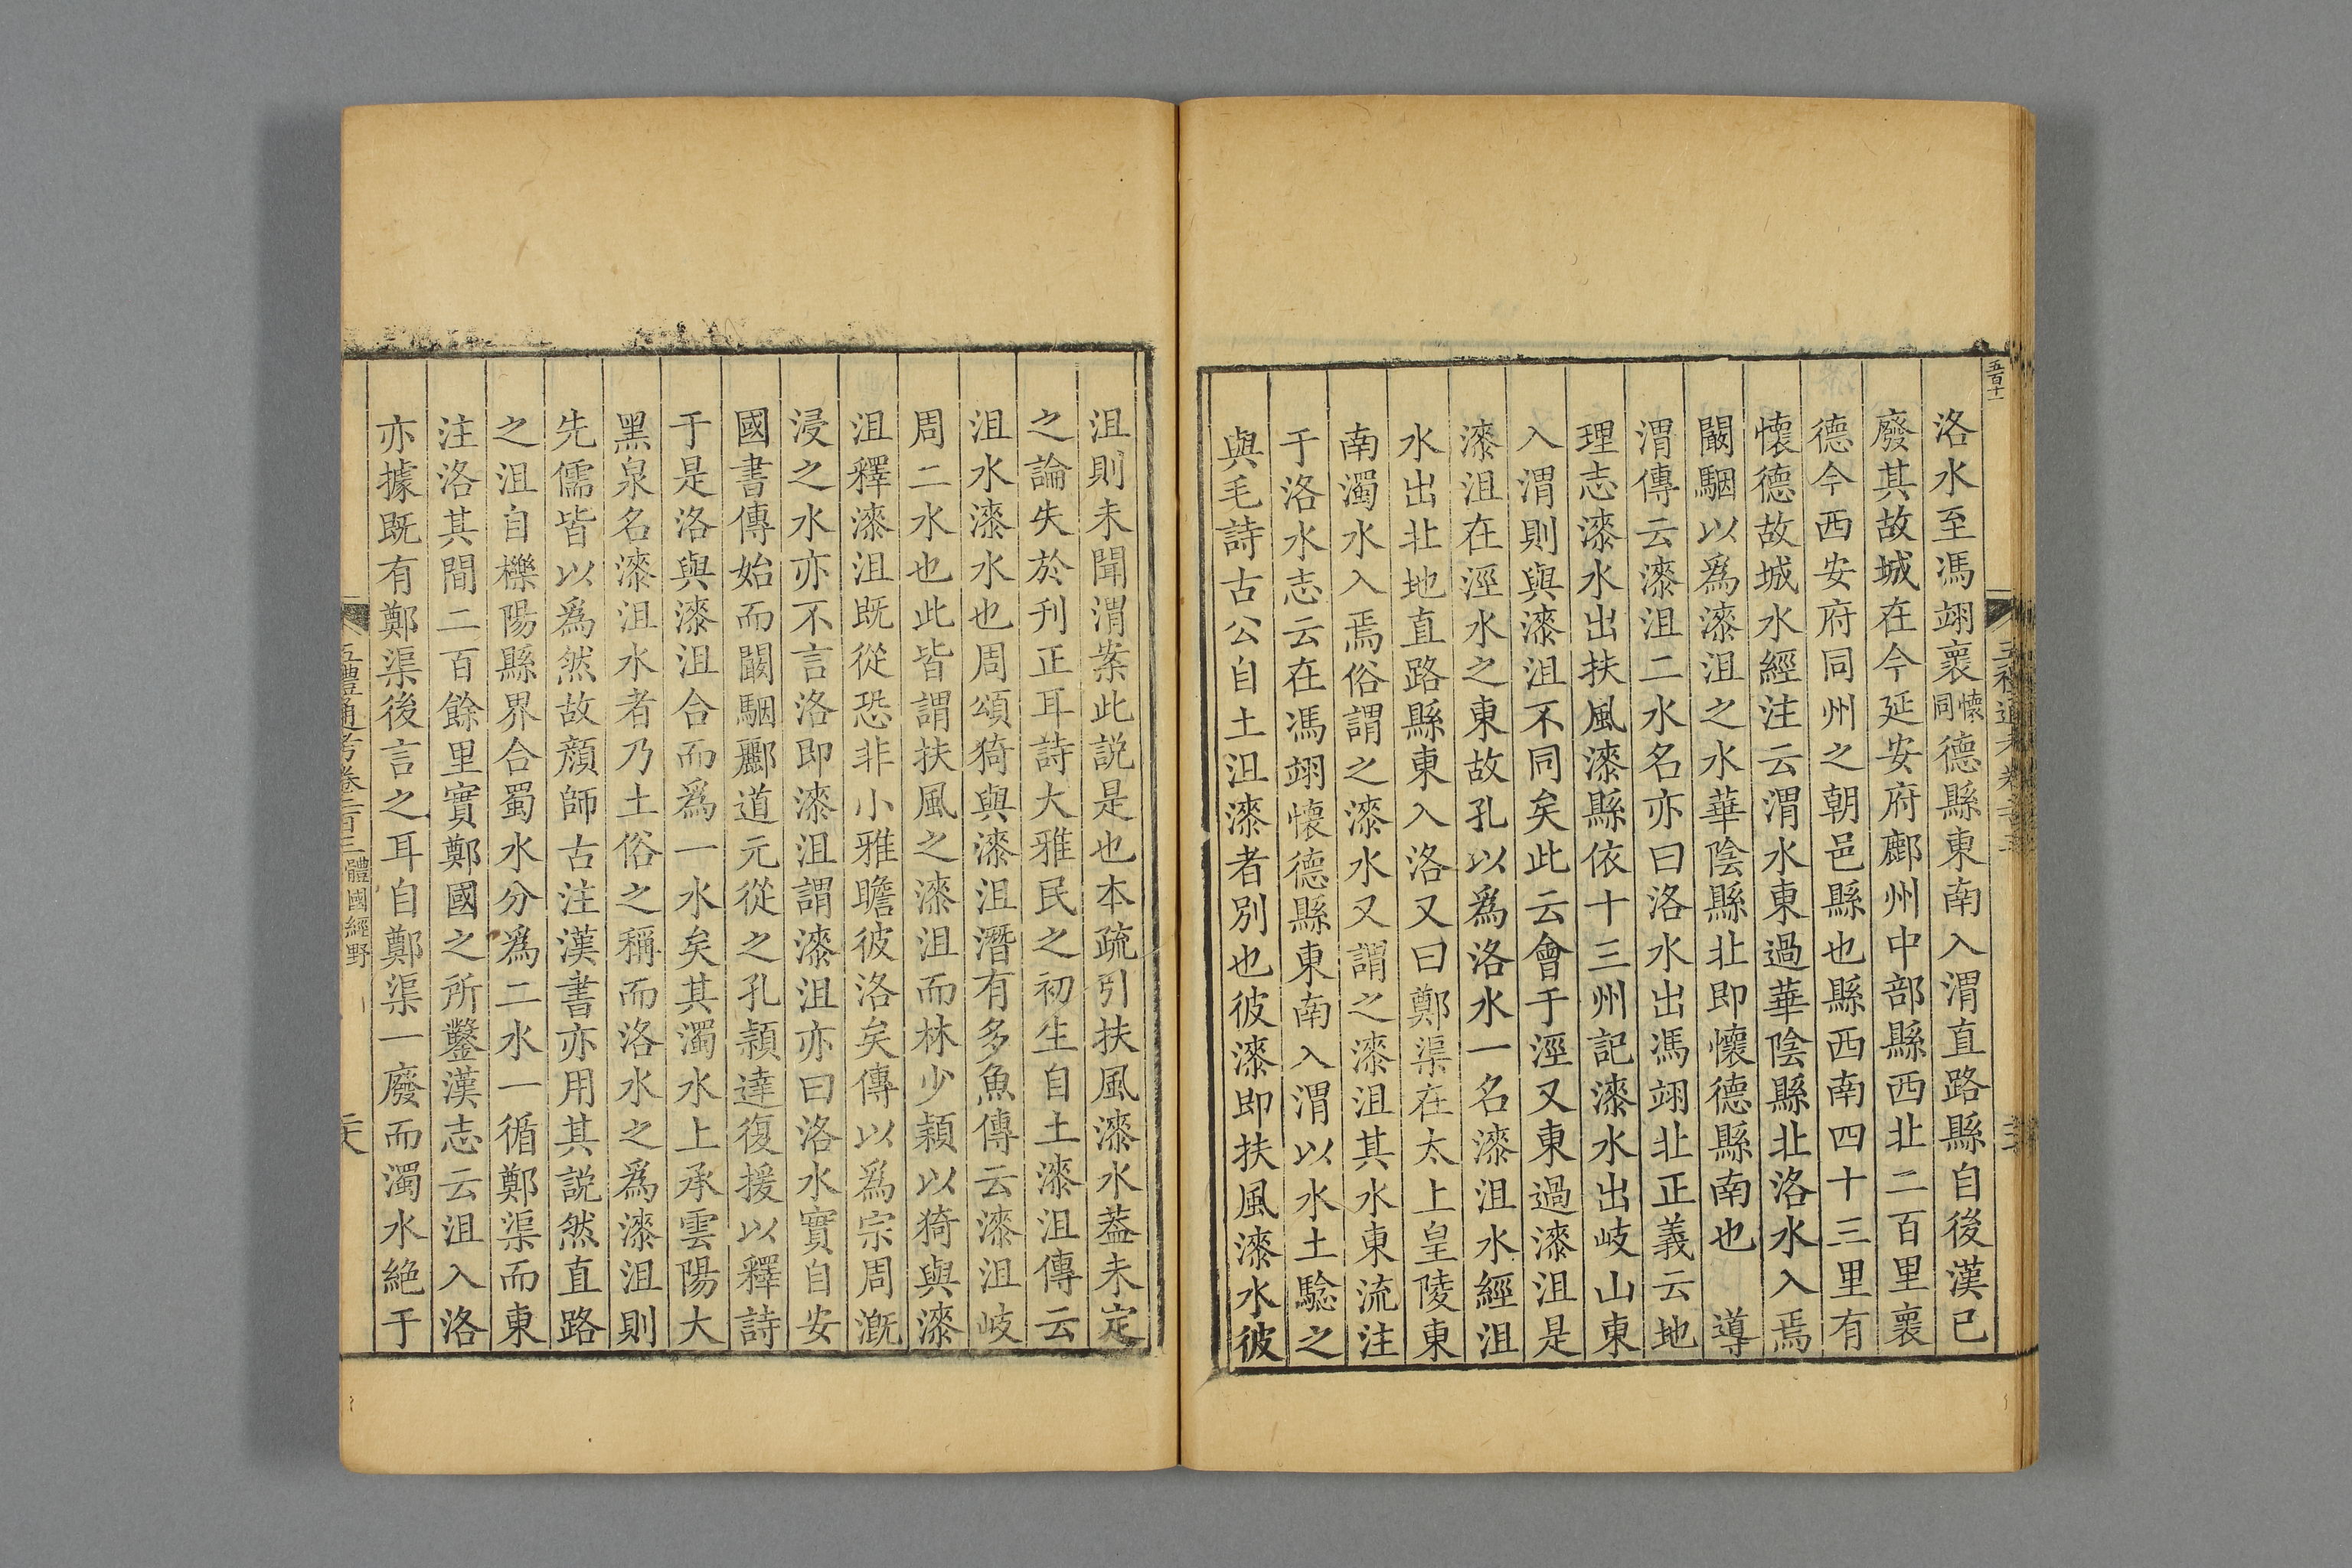 五百十
洛水至馮翊襄懷同德縣東南入渭直路縣自後漢已
廢其故城在今延安府鄜州中部縣西北二百里襄
德今西安府同州之朝邑縣也縣西南四十三里有
懷德故城水經注云渭水東過華陰縣北洛水入焉
闞駰以爲漆沮之水華陰縣北即懷德縣南也　導
渭傳云漆沮二水名亦曰洛水出馮翊北正義云地
理志漆水出扶風漆縣依十三州記漆水出岐山東
入渭則與漆沮不同矣此云會于涇又東過漆沮是
漆沮在涇水之東故孔以爲洛水一名漆沮水經沮
水出北地直路縣東入洛又曰鄭渠在太上皇陵東
南濁水入焉俗謂之漆水又謂之漆沮其水東流注
于洛水志云在馮翊懷德縣東南入渭以水土驗之
與毛詩古公自土沮漆者別也彼漆即扶風漆水彼
沮則未聞渭案此説是也本疏引扶風漆水葢未定
之論失於刊正耳詩大雅民之初生自土漆沮傳云
沮水漆水也周頌猗與漆沮潛有多魚傳云漆沮岐
周二水也此皆謂扶風之漆沮而林少穎以猗與漆
沮釋漆沮既從恐非小雅瞻彼洛矣傳以爲宗周漑
浸之水亦不言洛即漆沮謂漆沮亦曰洛水實自安
國書傳始而闞駰酈道元從之孔穎達復援以釋詩
于是洛與漆沮合而爲一水矣其濁水上承雲陽大
黑泉名漆沮水者乃土俗之稱而洛水之爲漆沮則
先儒皆以爲然故顏師古注漢書亦用其説然直路
之沮自櫟陽縣界合蜀水分爲二水一循鄭渠而東
注洛其間二百餘里實鄭國之所鑿漢志云沮入洛
亦據既有鄭渠後言之耳自鄭渠一廢而濁水絶于
五禮通考卷二百三 體國經野